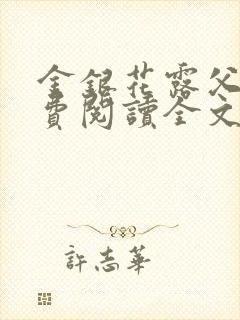 金銀花露父
費閱讀全文
許志華